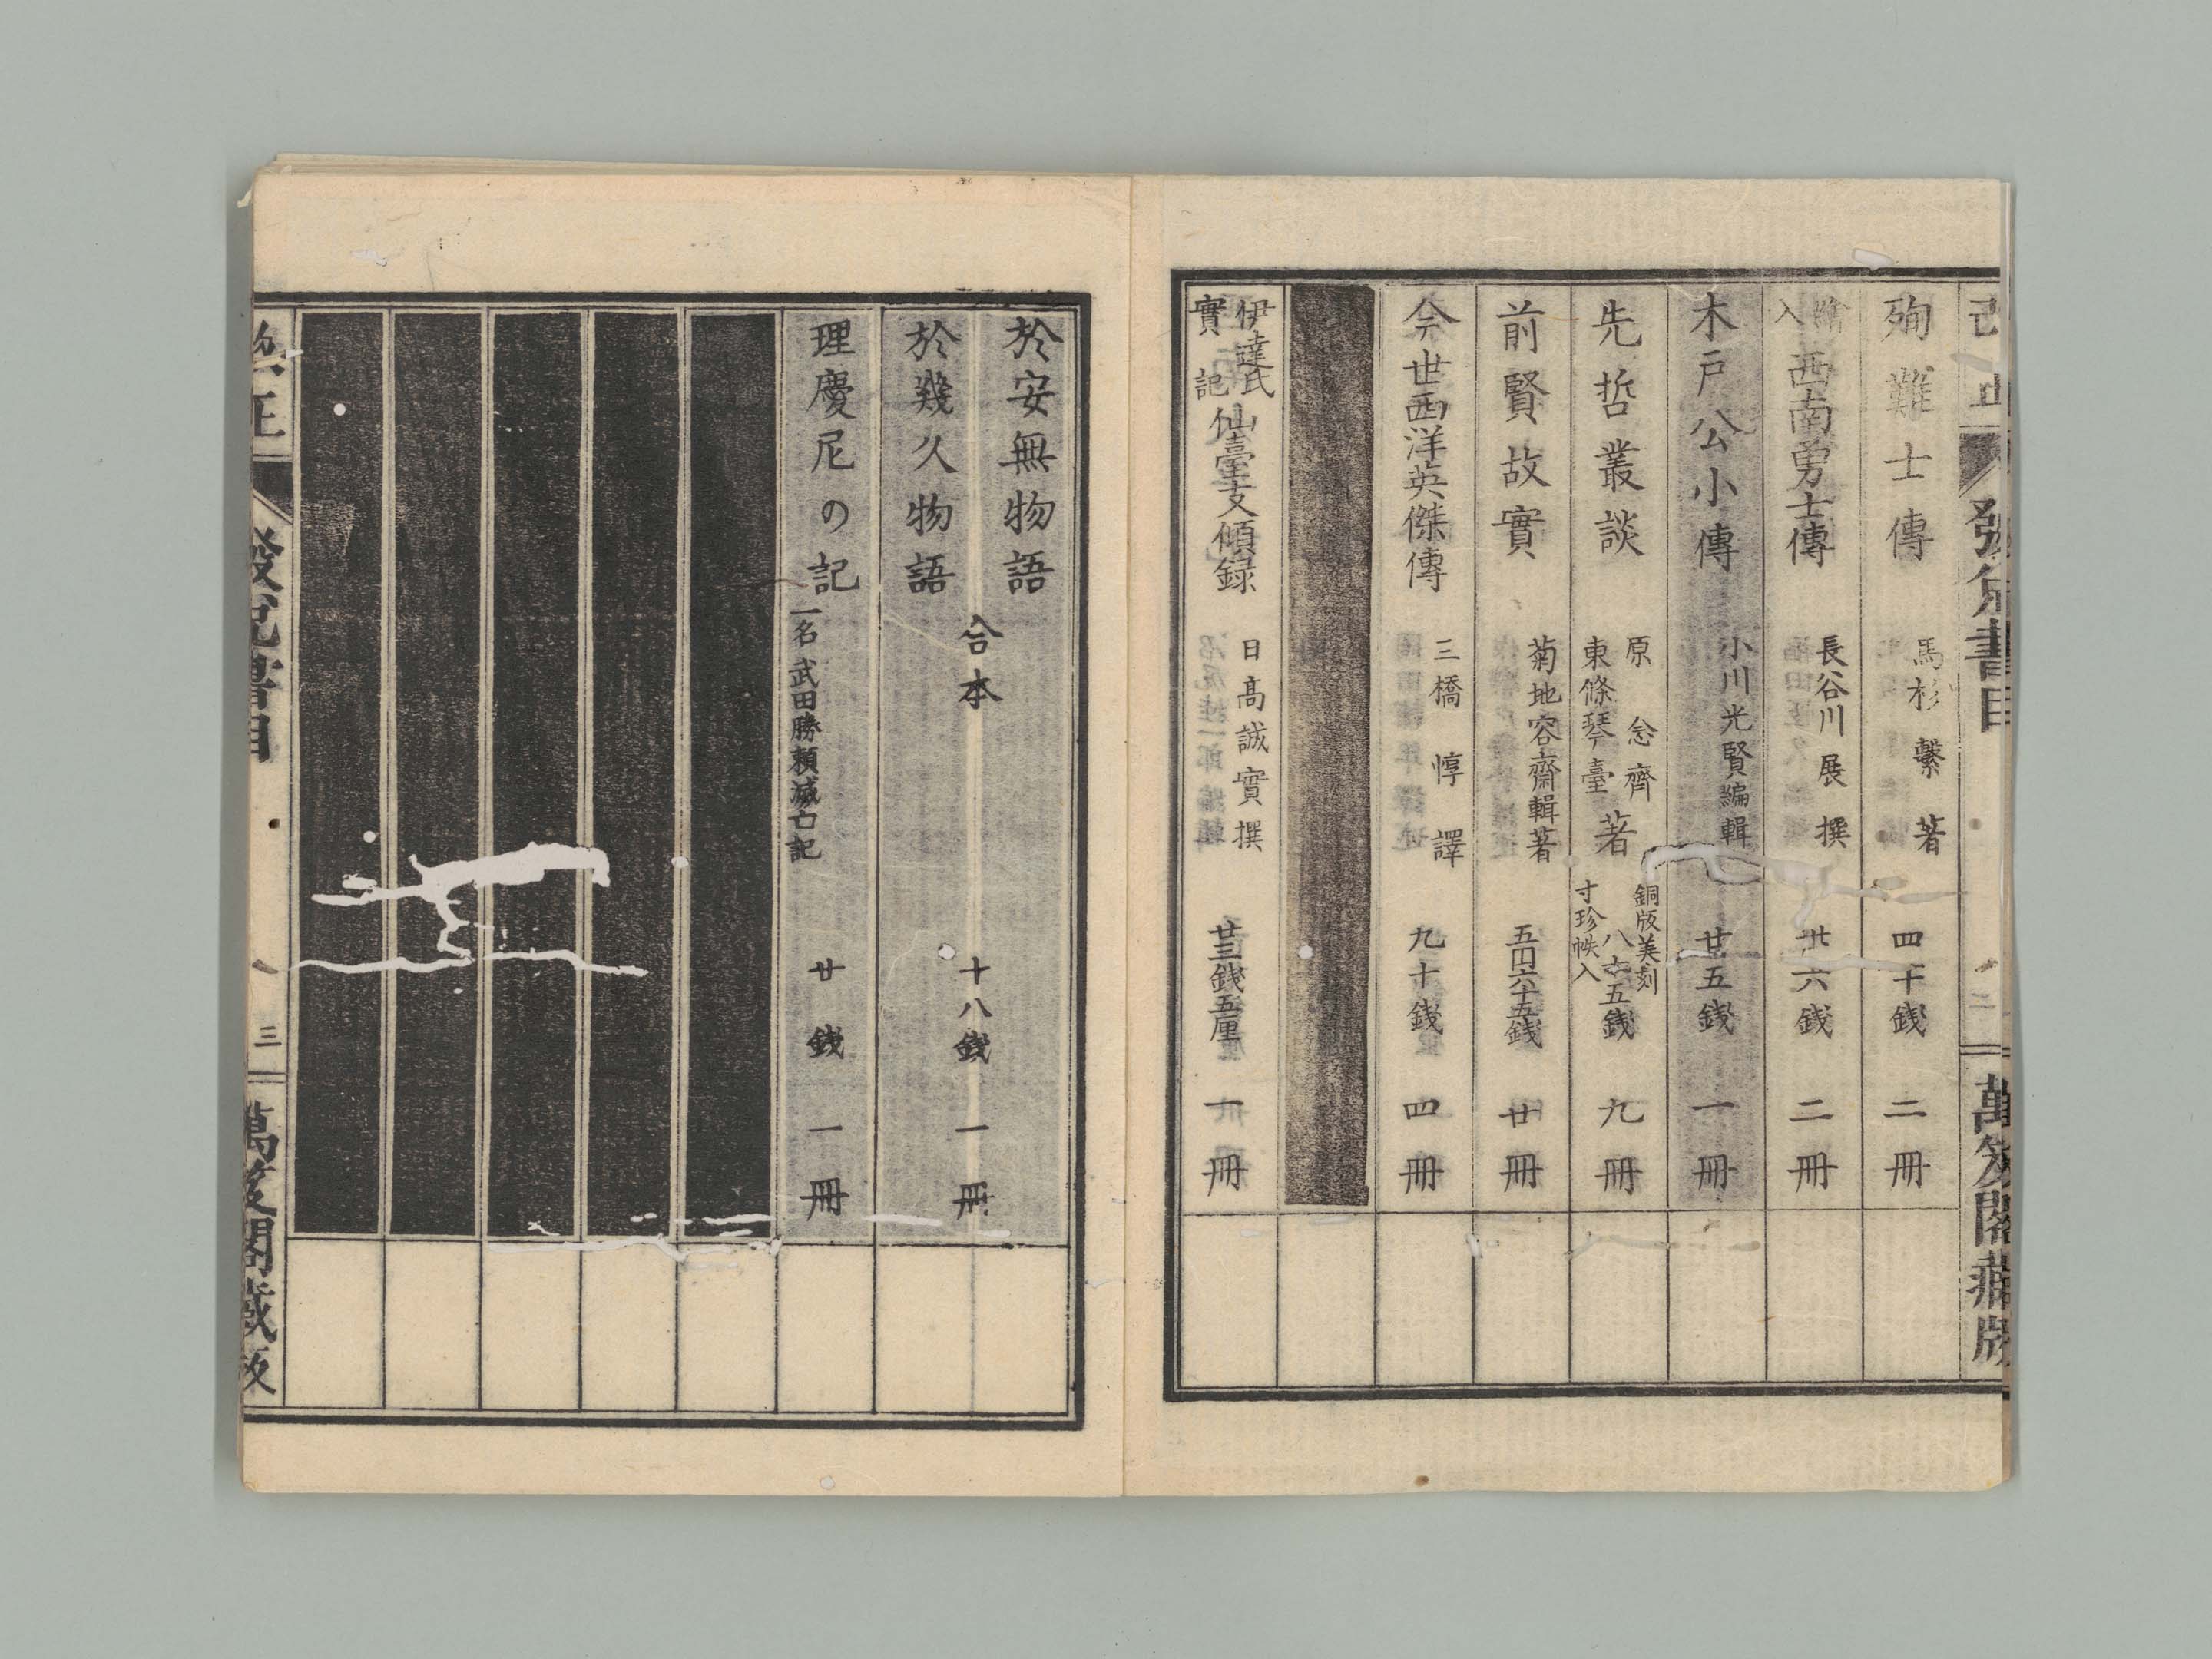 殉難士傳 馬杉繫著 四十錢 二冊
繪入 西南勇士傳 長谷川展撰 廿六錢 二冊
木戸公小傳 小川光賢編輯 廿五錢 一冊
先哲叢談 原念齊 東條琴臺 著 銅版美刻 寸珍帙入 八十五錢 九冊
前賢故實 菊地容齋輯著 五円六十五錢 廿冊
今世西洋英傑傳 三橋惇譯 九十錢 四冊
伊達氏實記 仙臺支傾録 日高誠實撰 廿三錢五厘 一冊
萬笈閣藏版
於安無物語
合本 十八錢 一冊
於幾久物語
理慶尼の記 一名武田勝頼滅亡記 廿錢 一冊
發兌書目
三
萬笈閣藏版